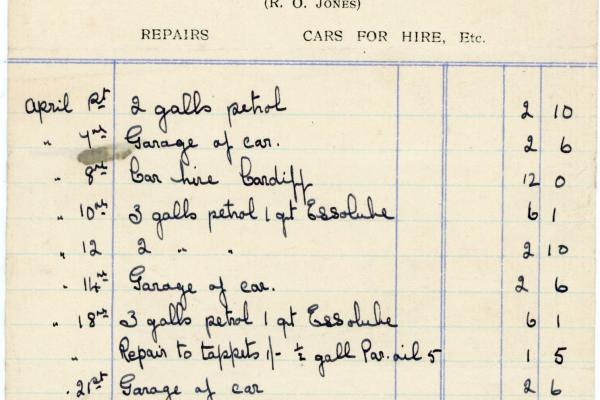 (R. O. JONES)
REPAIRS CARS FOR HIRE, Etc.
April 1st 2 galls petrol 2 10
" 7th Garage of car. 2 6
" 8th Car hire Cardiff 12 0
" 10th 3 galls petrol 1 qt Essolube 6 1
" 12 2 " " 2 10
" 14th Garage of car. 2 6
" 18th 3 galls petrol 1 qt Essolube 6 1
" Repair to tappets 1/- ½ gall Par. oil 5 1 5
" 21st Garage of car 2 6